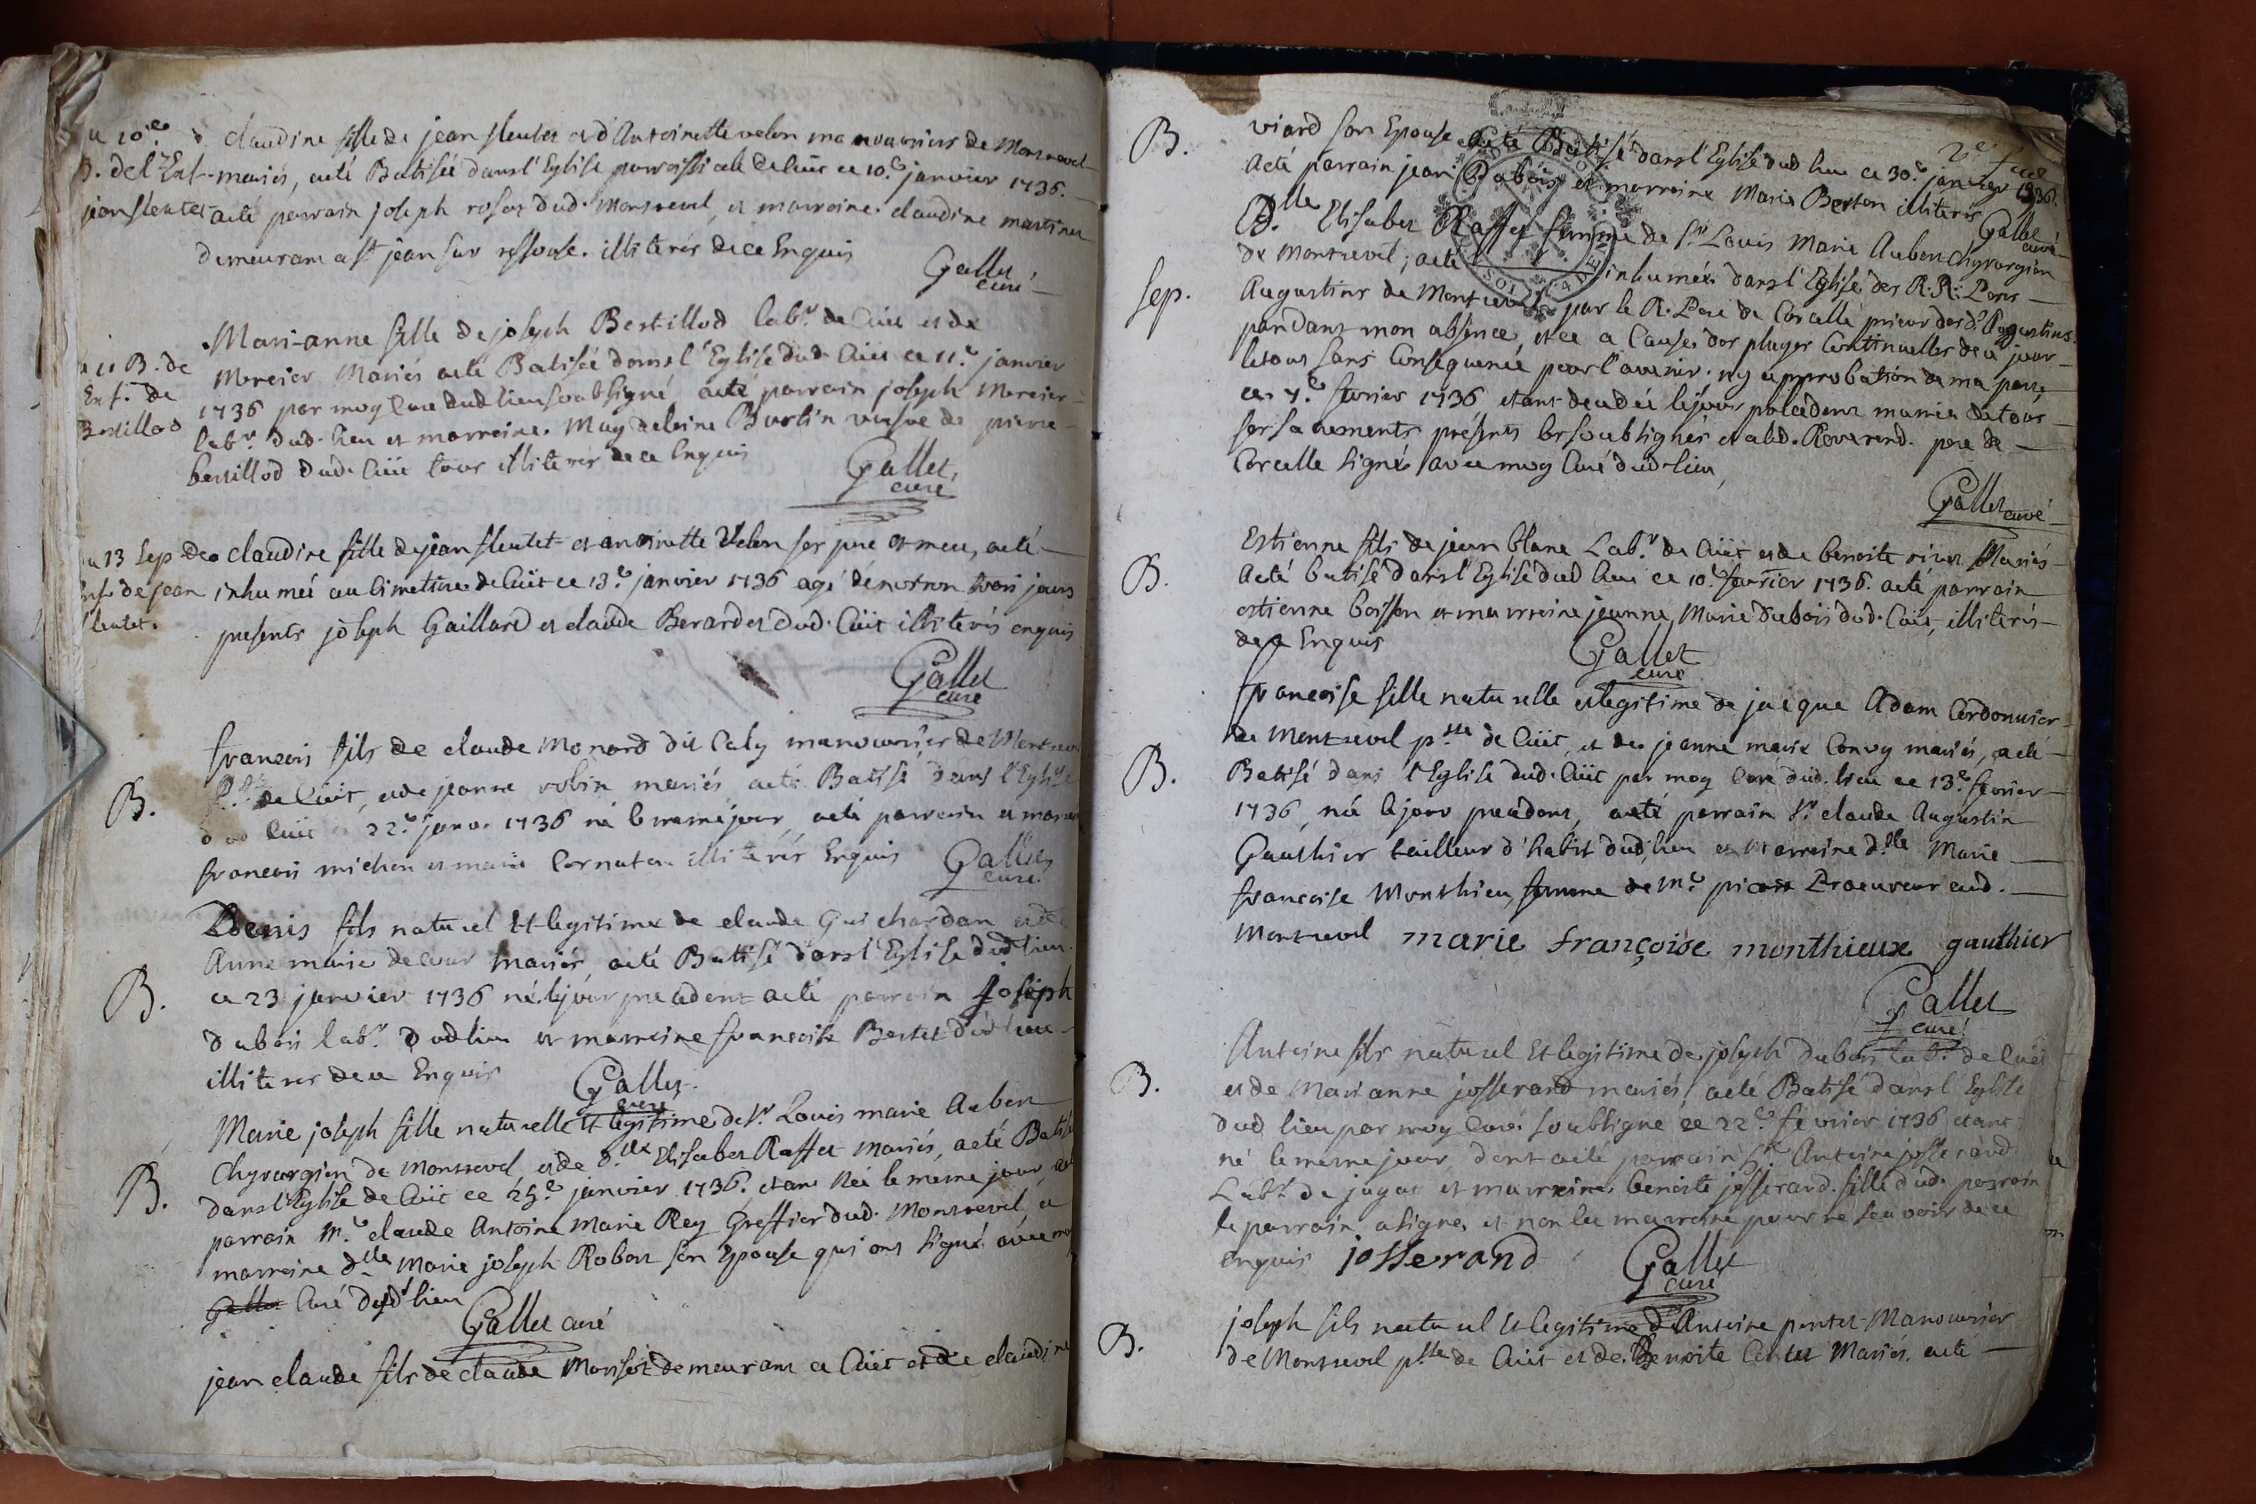 u 10.e
B. de l'Enf.
jean fleutet
claudine fille de jean fleutet et d'Antoinette velon manouvrier de Monrevel
mariés, a eté Batisée dans l'Eglise parroissialle de Cuit ce 10.e janvier 1736.
a eté parrain joseph rosat dud. Monrevel, et marraine claudine martinet
demeurant a st jean sur ressouse. illiterés de ce Enquis
Gallet
curé
11 B. de
Enf. de
Bertillod
Mari-anne fille de joseph Bertillod lab.r de Cuit et de
Mercier Mariés a eté Batisée dans l'Eglise dud. Cuit ce 11.e janvier
1736 par moy Curé dud lieu soubsigné a eté parrain joseph Mercier
lab.r dud. lieu et marreine Magdeleine Burtin veufve de pierre
bertillod dud. Cuit tous illiteres de ce Enquis
Gallet
curé
u 13 Sep. de
enf. de jean
fleutet.
claudine fille de jean fleutet et antoinette Velon ses pere et mere, a eté
inhumée au cimetiere de Cuit ce 13.e janvier 1736 agé d'environ trois jours
presents joseph Gaillard et claude Berardet dud. Cuit illiterés enquis
Gallet
curé
B.
francois fils de claude Monard dit Caly manouvrier de Montrevel
p.sse de Cuit, et de jeanne robin mariés a eté Batisé dans l'Eglise
dud Cuit ce 22.e janv. 1736 né le meme jour, a eté parrain et marr
francois michon et marie Cornaton illiterés Enquis
Gallet
curé
B.
Denis fils naturel et legitime de claude Guichardan et de
Anne marie decour mariés, a eté Batisé dans l'Eglise dud lieu
ce 23 janvier 1736 né le jour precedent a eté parrain Joseph
dubois lab.r dud lieu et marreine francoise Bertet dud lieu
illiteres de ce Enquis
Gallet
curé
B.
Marie joseph fille naturelle et legitime de s.r Louis marie Auben
Chyrurgien de Monrevel, et de d.lle Elisabet Raffet mariés, a eté Batisé
dans l'Eglise de Cuit ce 25.e janvier 1736. etant née le meme jour,
parrain M.e claude Antoine Marie Rey Greffier dud. Monrevel, et
marreine d.lle Marie joseph Robert son Epouse qui ont signé avec moy
Gallet Curé dud. lieu
Gallet curé
jean claude fils de claude Morisot demeurant a Cuit et de claudine
2.e feuil
B.
viard son Epouse a eté Batisé dans l'Eglise dud lieu ce 30.e janvier 1736.
a eté parrain jean Dubois et marraine Marie Berton illiteres
Gallet
curé
Sep.
D.lle Elisabet Raffet femme de s.r Louis Marie Auben chyrurgien
de Montrevel, a eté inhumée dans l'Eglise des R. R. Peres
Augustins de Montrevel par le R. Pere de Corcelle prieur des d. Augustins
pendant mon absence, et ce a Cause des pluyes Continuelles de ce jour
le tout sans Consequence pour l'avenir. ny approbation de ma part,
ce 7.e fevrier 1736 etant decedée le jour precedent munie de tous
ses sacrements présents les soubsignés et led. Reverend. pere de
Corcelle signés avec moy Curé dud lieu,
Gallet curé
B.
Estienne fils de jean blanc Lab.r de Cuit et de benoite Mariés
a eté batisé dans l'Eglise dud lieu ce 10.e fevrier 1736. a eté parrain
estienne boisson et marreine jeanne Marie dubois dud. Cuit, illiterés
de ce Enquis
Gallet
curé
B.
francoise fille naturelle et legitime de jacque Adam Cordonnier
de Montrevel p.sse de Cuit, et de jeanne marie Convy mariés, a eté
Batisé dans l'Eglise dud. Cuit par moy Curé dud. lieu ce 13.e fevrier
1736, née le jour precedent, a eté parrain s.r claude Augustin
Gauthier tailleur d'habit dud. lieu et Marreine d.lle Marie
francoise Monthieu, femme de M.e picart Procureur aud.
Montrevel marie françoise monthieux gauthier
Gallet
curé
B.
Antoine fils naturel et legitime de joseph dubois lab.r de Cuit
et de Marianne josserand mariés, a eté Batisé dans l'Eglise
dud lieu par moy Curé soubsigné ce 22.e fevrier 1736 etant
né le meme jour, dont a eté parrain s.r Antoine josserand
Lab.r de jayat et marraine benoite josserand fille dud. parrain
le parrain a signé, et non la marraine pour ne sçavoir de ce
enquis josserand
Gallet
curé
B.
joseph fils naturel et legitime d'Antoine pentet Manouvrier
de Montrevel p.sse de Cuit et de Benoite Mariés, a eté